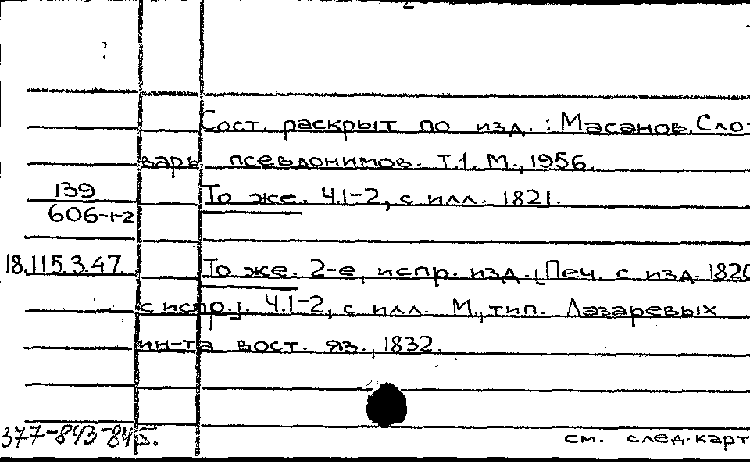 Сост. раскрыт по изд.: Масанов. Сло-
варь псевдонимов. Т.1. М., 1956.
139 То же. Ч.1-2, с илл. 1821.
606-1-2
18.115.3.47 То же. 2-е, испр. изд. [Печ. с изд. 1820
с испр.]. Ч.1-2, с илл. М., тип. Лазаревых
ин-та вост. яз., 1832.
377-843-845.
см. след. карт